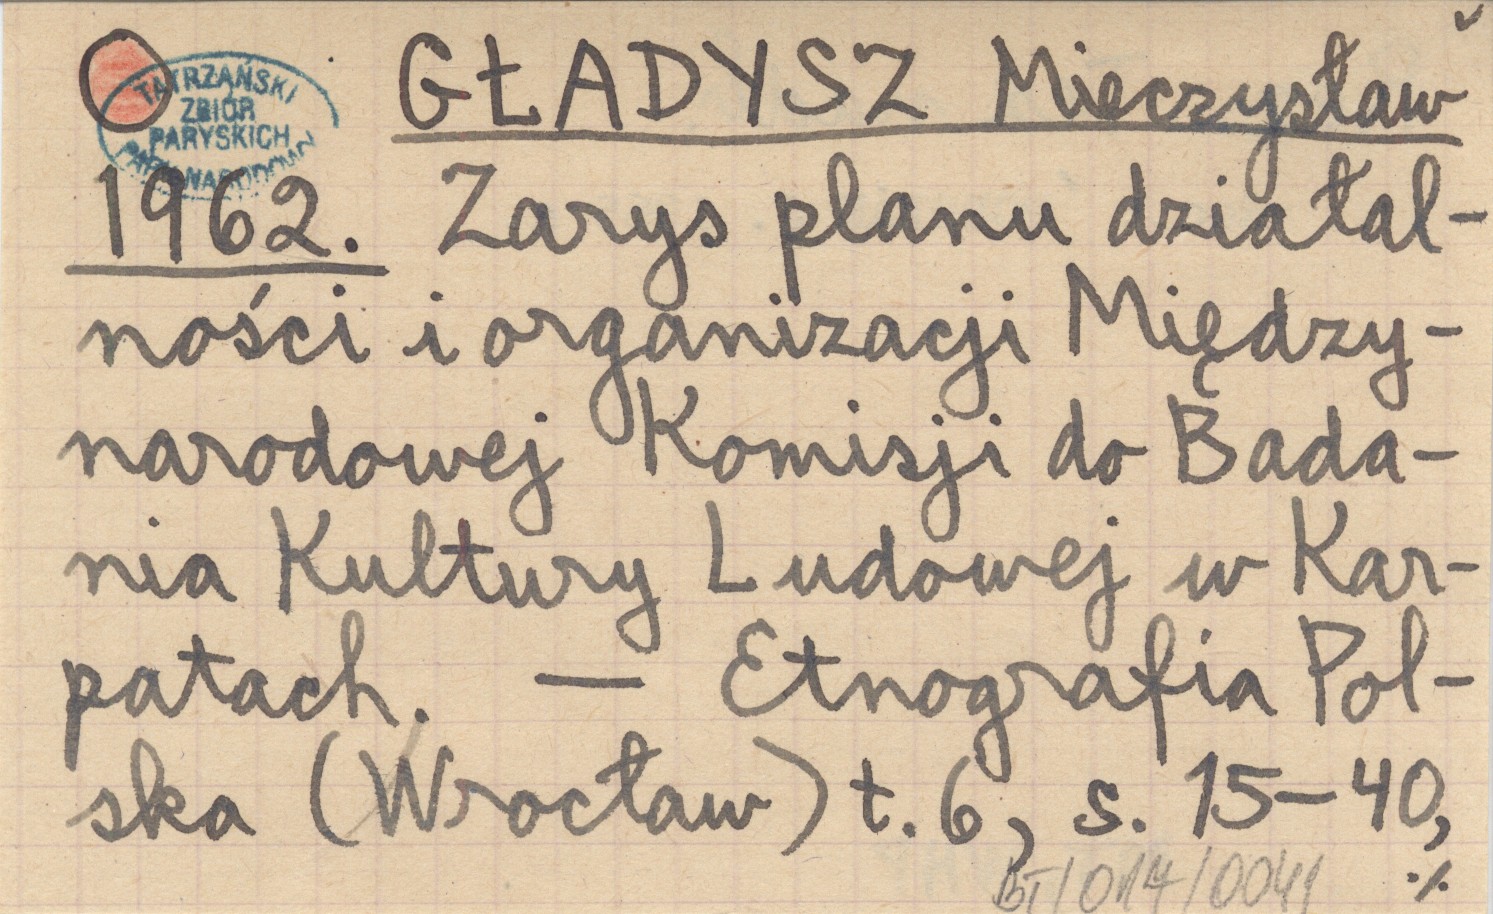 GŁADYSZ Mieczysław
TATRZAŃSKI
ZBIÓR
PARYSKICH
PARK NARODOWY
1962. Zarys planu działal-
ności i organizacji Między-
narodowej Komisji do Bada-
nia Kultury Ludowej w Kar-
patach. — Etnografia Pol-
ska (Wrocław) t. 6, s. 15-40,
BT/014/0041
·/.